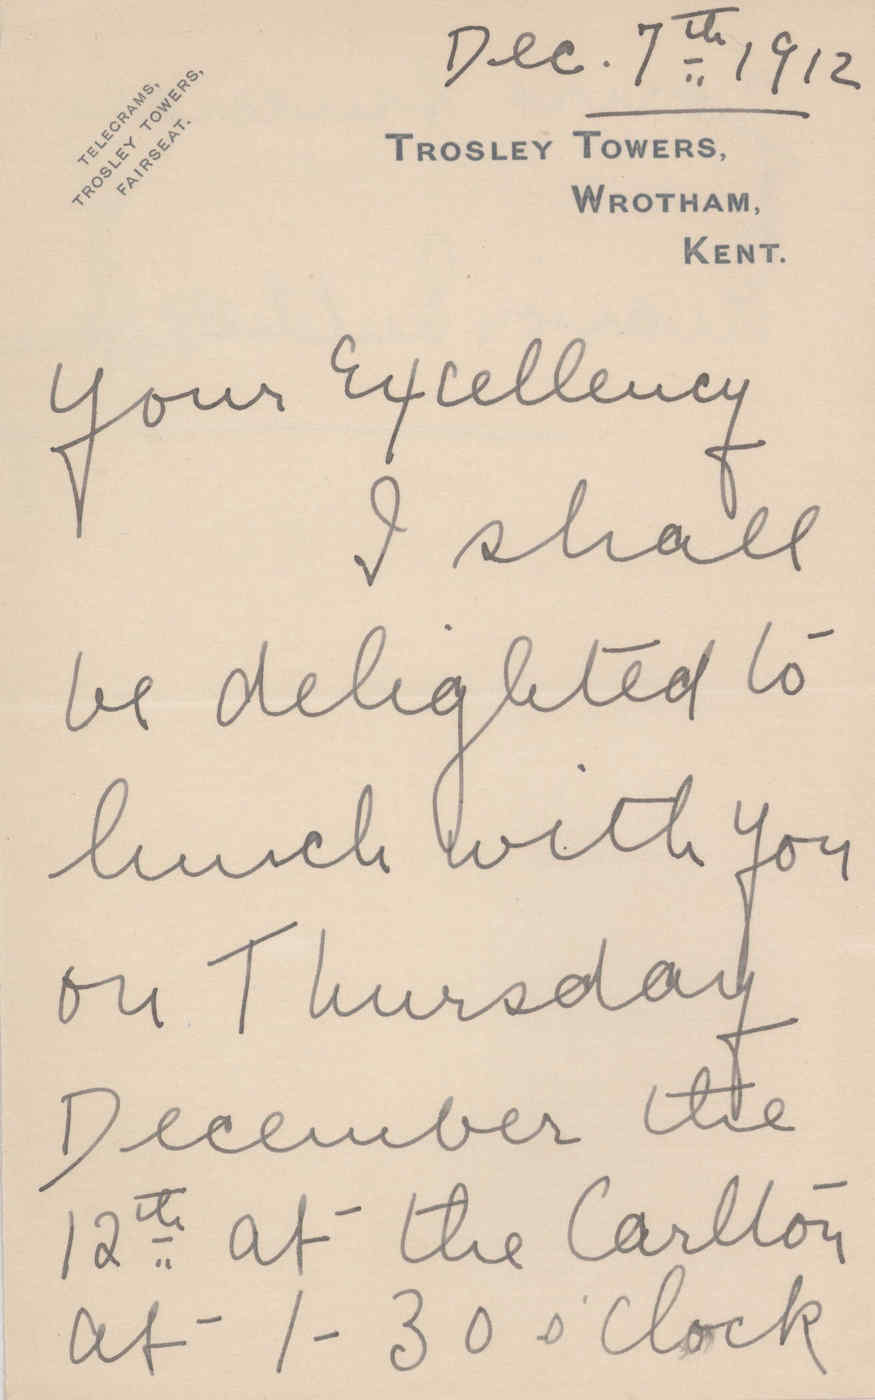 Dec. 7th 1912
TELEGRAMS,
TROSLEY TOWERS,
FAIRSEAT.
TROSLEY TOWERS,
WROTHAM,
KENT.
Your Excellency
I shall
be delighted to
lunch with you
on Thursday
December the
12th at the Carlton
at 1-30 o'Clock